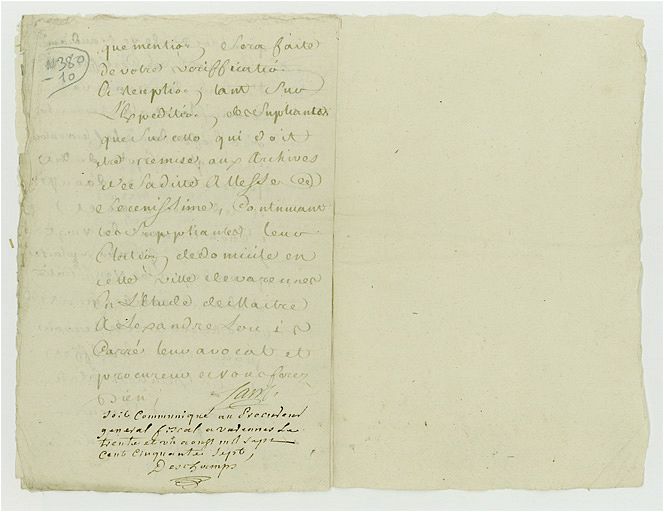 11380
10
que mention, sera faite
de votre veriffication
Et reception, tant sur
L'Expedition, des Supliantes
que sur celle qui doit
etre remise, aux Archives
de Sa ditte Altesse
Serenissime, Continuant
les Suppliantes leur
Election, de domicile en
cette ville de varennes
En L'Etude de Maitre
Alexandre Louis
Parré leur avocat et
procureur et vous ferez
bien,
soit Communiqué au Procureur
general fiscal a varennes Le
trente et un aoust mil sept
Cent Cinquante sept,
Deschamps